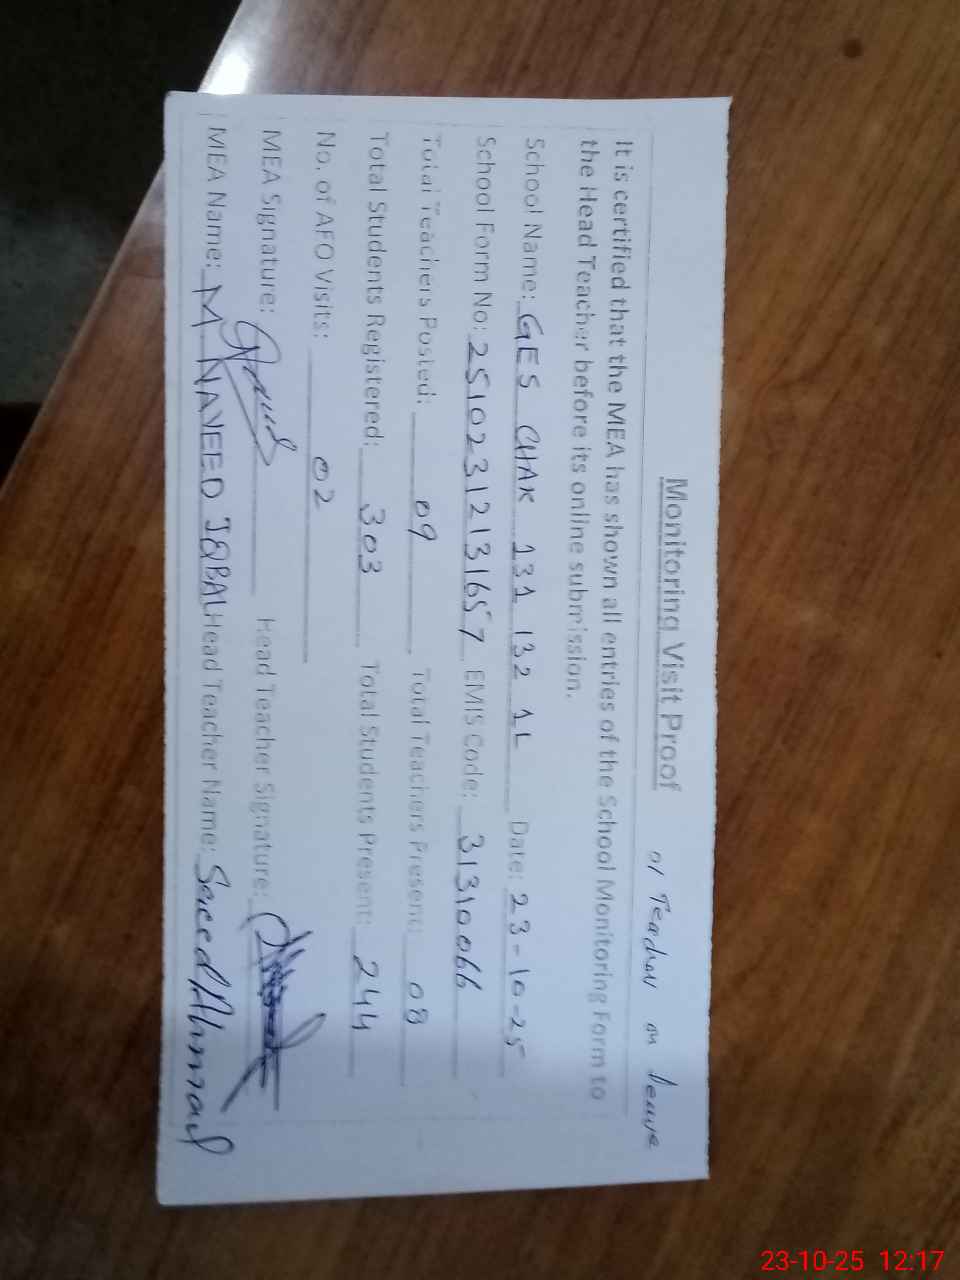 Monitoring Visit Proof
01 Teacher on leave
It is certified that the MEA has shown all entries of the School Monitoring Form to
the Head Teacher before its online submission.
School Name: GES CHAK 131 132 1L Date: 23-10-25
School Form No: 25102312131657 EMIS Code: 31310066
Total Teachers Posted: 09 Total Teachers Present: 08
Total Students Registered: 303 Total Students Present: 244
No. of AEO Visits: 02
MEA Signature: Head Teacher Signature:
MEA Name: M NAVEED IQBAL Head Teacher Name: Saeed Ahmad
23-10-25 12:17